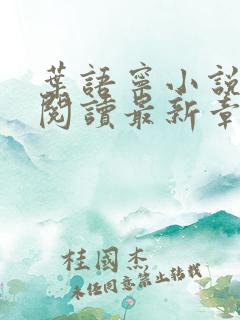 葉語寧小說
閱讀最新章
桂國杰
未經同意禁止轉載